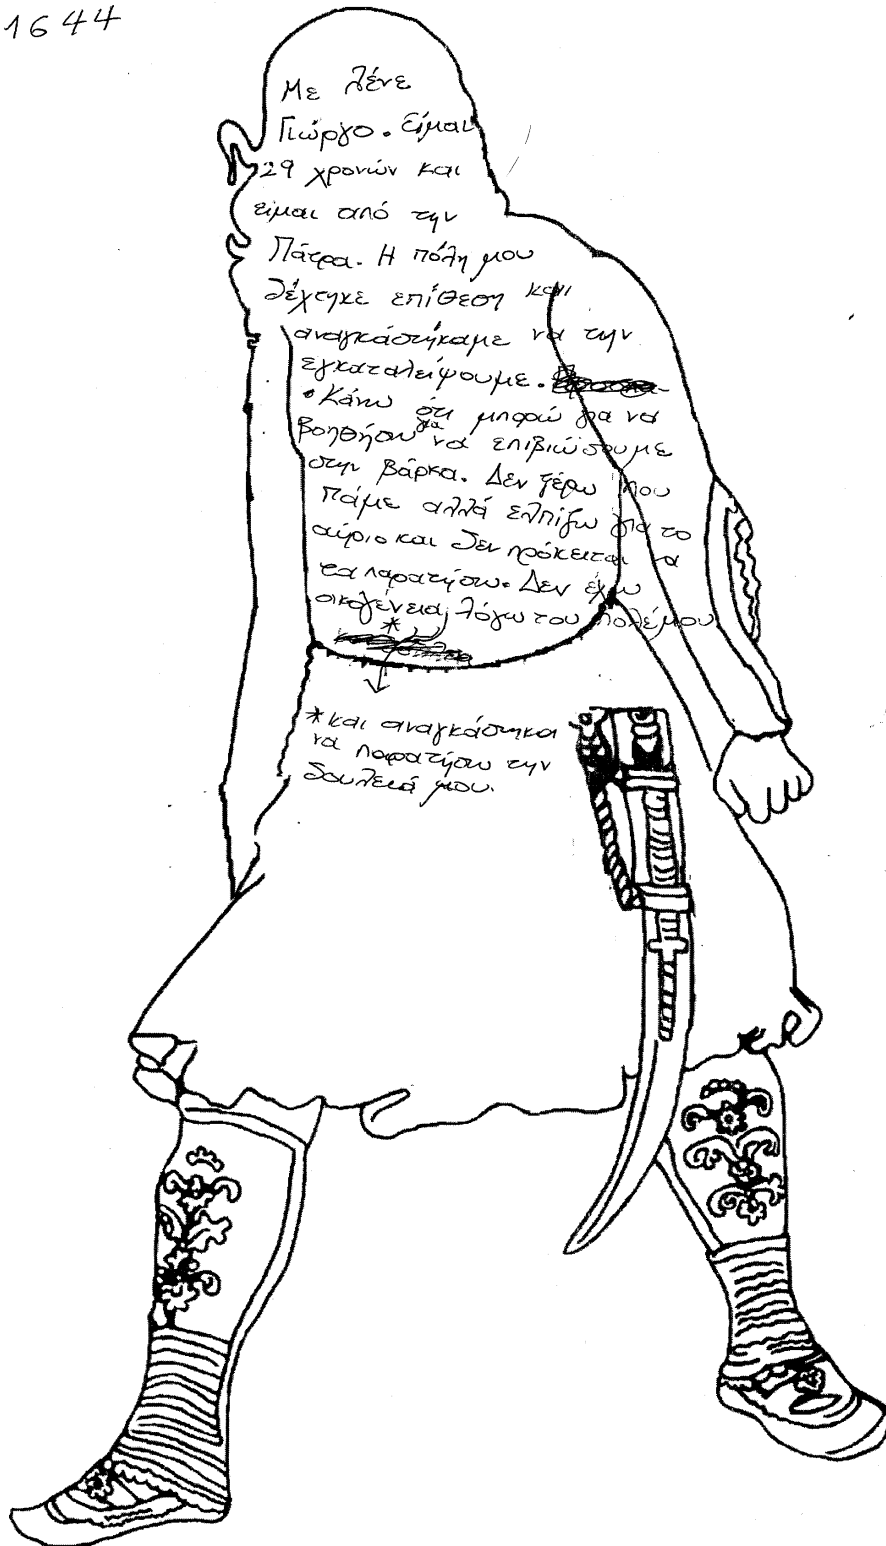 1644
Με λένε
Γιώργο. Είμαι
29 χρονών και
είμαι από την
Πάτρα. Η πόλη μου
δέχτηκε επίθεση και
αναγκάστηκαμε να την
εγκαταλείψουμε.
• Κάνω ότι μπορώ για να
βοηθήσω για να επιβιώσουμε
στην βάρκα. Δεν ξέρω που
πάμε αλλά ελπίζω για το
αύριο και δεν πρόκειται να
τα παρατήσω. Δεν έχω
οικογένεια λόγω του πολέμου
*
*και αναγκάστηκα
να παρατήσω την
δουλειά μου.